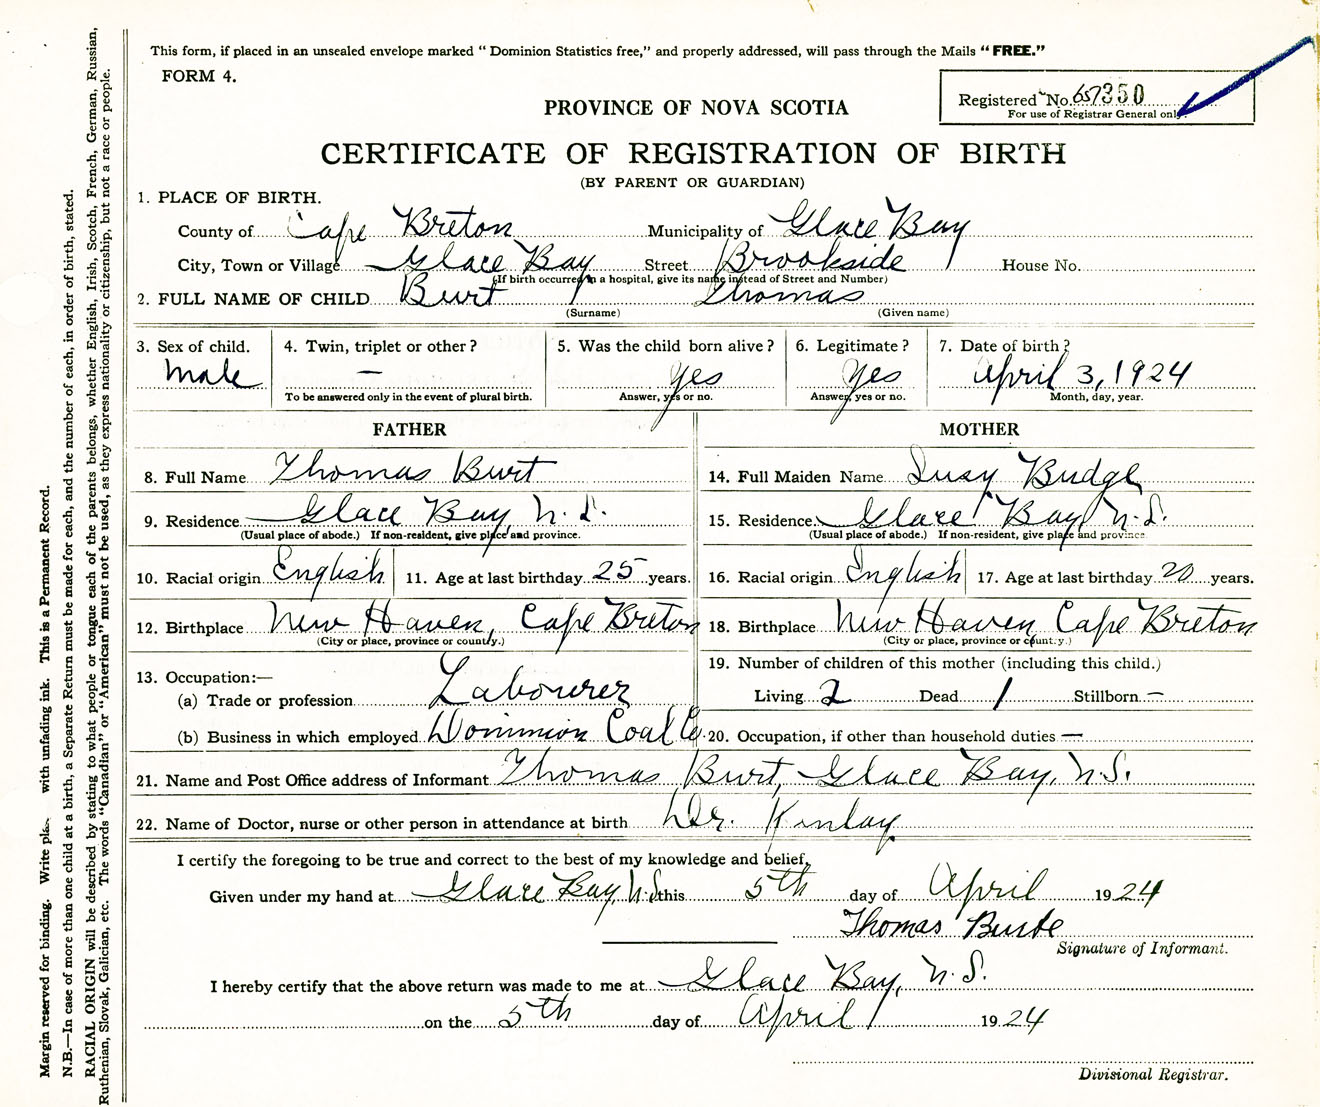 This form, if placed in an unsealed envelope marked "Dominion Statistics free," and properly addressed, will pass through the Mails "FREE."
FORM 4.
Registered No. 657350
For use of Registrar General only.
PROVINCE OF NOVA SCOTIA
CERTIFICATE OF REGISTRATION OF BIRTH
(BY PARENT OR GUARDIAN)
1. PLACE OF BIRTH.
County of Cape Breton Municipality of Glace Bay
City, Town or Village Glace Bay Street Brookside House No.
(If birth occurred in a hospital, give its name instead of Street and Number)
2. FULL NAME OF CHILD Burt Thomas
(Surname) (Given name)
3. Sex of child. 4. Twin, triplet or other? 5. Was the child born alive? 6. Legitimate? 7. Date of birth?
Male — Yes Yes April 3, 1924
To be answered only in the event of plural birth. Answer, yes or no. Answer, yes or no. Month, day, year.
FATHER MOTHER
8. Full Name Thomas Burt 14. Full Maiden Name Susy Budge
9. Residence Glace Bay, N.S. 15. Residence Glace Bay, N.S.
(Usual place of abode.) If non-resident, give place and province. (Usual place of abode.) If non-resident, give place and province.
10. Racial origin English 11. Age at last birthday 25 years. 16. Racial origin English 17. Age at last birthday 20 years.
12. Birthplace New Haven, Cape Breton 18. Birthplace New Haven Cape Breton
(City or place, province or county.) (City or place, province or county.)
13. Occupation:— 19. Number of children of this mother (including this child.)
(a) Trade or profession Labourer Living 2 Dead 1 Stillborn —
(b) Business in which employed Dominion Coal Co. 20. Occupation, if other than household duties —
21. Name and Post Office address of Informant Thomas Burt, Glace Bay, N.S.
22. Name of Doctor, nurse or other person in attendance at birth Dr. Kinlay
I certify the foregoing to be true and correct to the best of my knowledge and belief,
Given under my hand at Glace Bay, N.S. this 5th day of April 1924
Thomas Burte
Signature of Informant.
I hereby certify that the above return was made to me at Glace Bay, N.S.
on the 5th day of April 1924
Divisional Registrar.
Margin reserved for binding. Write with unfading ink. This is a Permanent Record.
N.B.—In case of more than one child at a birth, a Separate Return must be made for each, and the number of each, in order of birth, stated.
RACIAL ORIGIN will be described by stating to what people or tongue each of the parents belongs, whether English, Irish, Scotch, French, German, Russian,
Ruthenian, Slovak, Galician, etc. The words "Canadian" or "American" must not be used, as they express nationality or citizenship, but not a race or people.